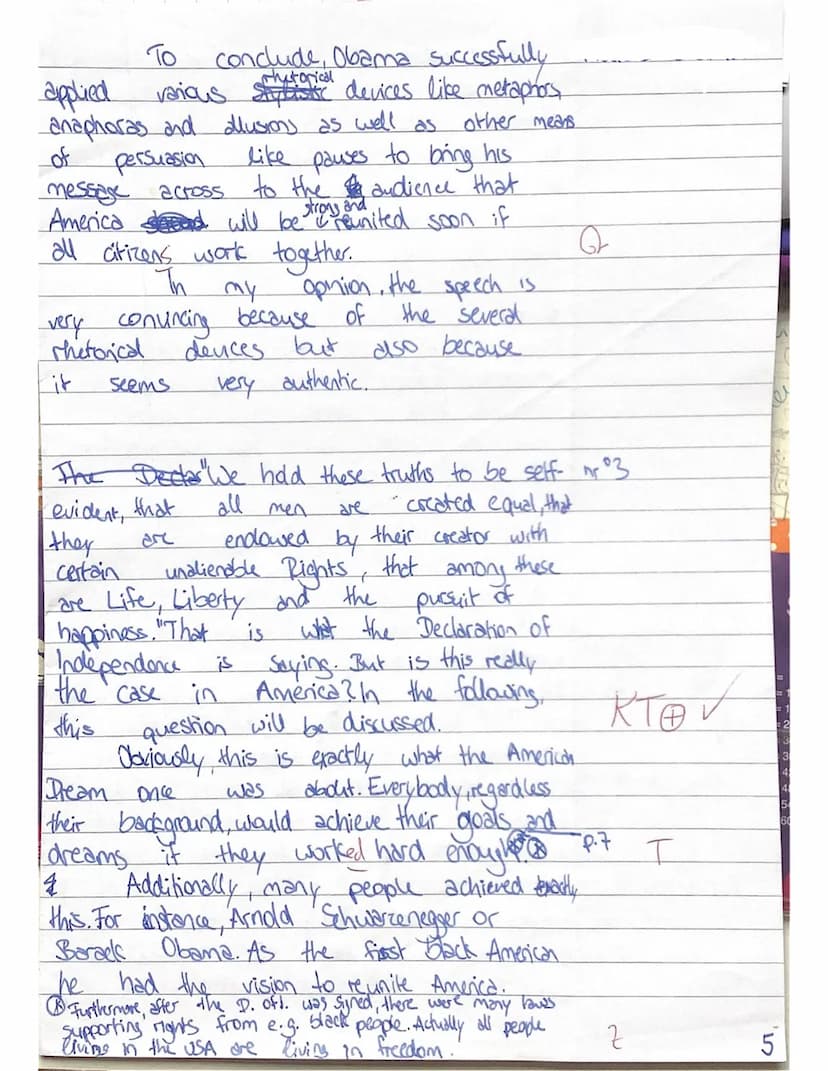 To conclude, Obama successfully
applied various rhetorical devices like metaphors,
anaphoras and allusions as well as other means
of persuasion like pauses to bring his
message across to the audience that
America will be strong and reunited soon if
all citizens work together.
Gr
In my opinion, the speech is
very convincing because of the several
rhetorical devices but also because
it seems very authentic.
The Decla "We hold these truths to be self- nr°3
evident, that all men are created equal, that
they are endowed by their creator with
certain unalienable Rights, that among these
are Life, Liberty and the pursuit of
happiness." That is what the Declaration of
Independence is saying. But is this really
the case in America? In the following,
this question will be discussed.
KT⊕ ✓
Obviously, this is exactly what the American
Dream once was about. Everybody, regardless
their background, would achieve their goals and
dreams if they worked hard enough. Ⓐ p.7 T
Additionally, many people achieved exactly
this. For instance, Arnold Schwarzenegger or
Barack Obama. As the first black American
he had the vision to reunite America.
Ⓐ Furthermore, after the D. of I. was signed, there were many laws
supporting rights from e.g. black people. Actually all people
living in the USA are living in freedom.
Z
5